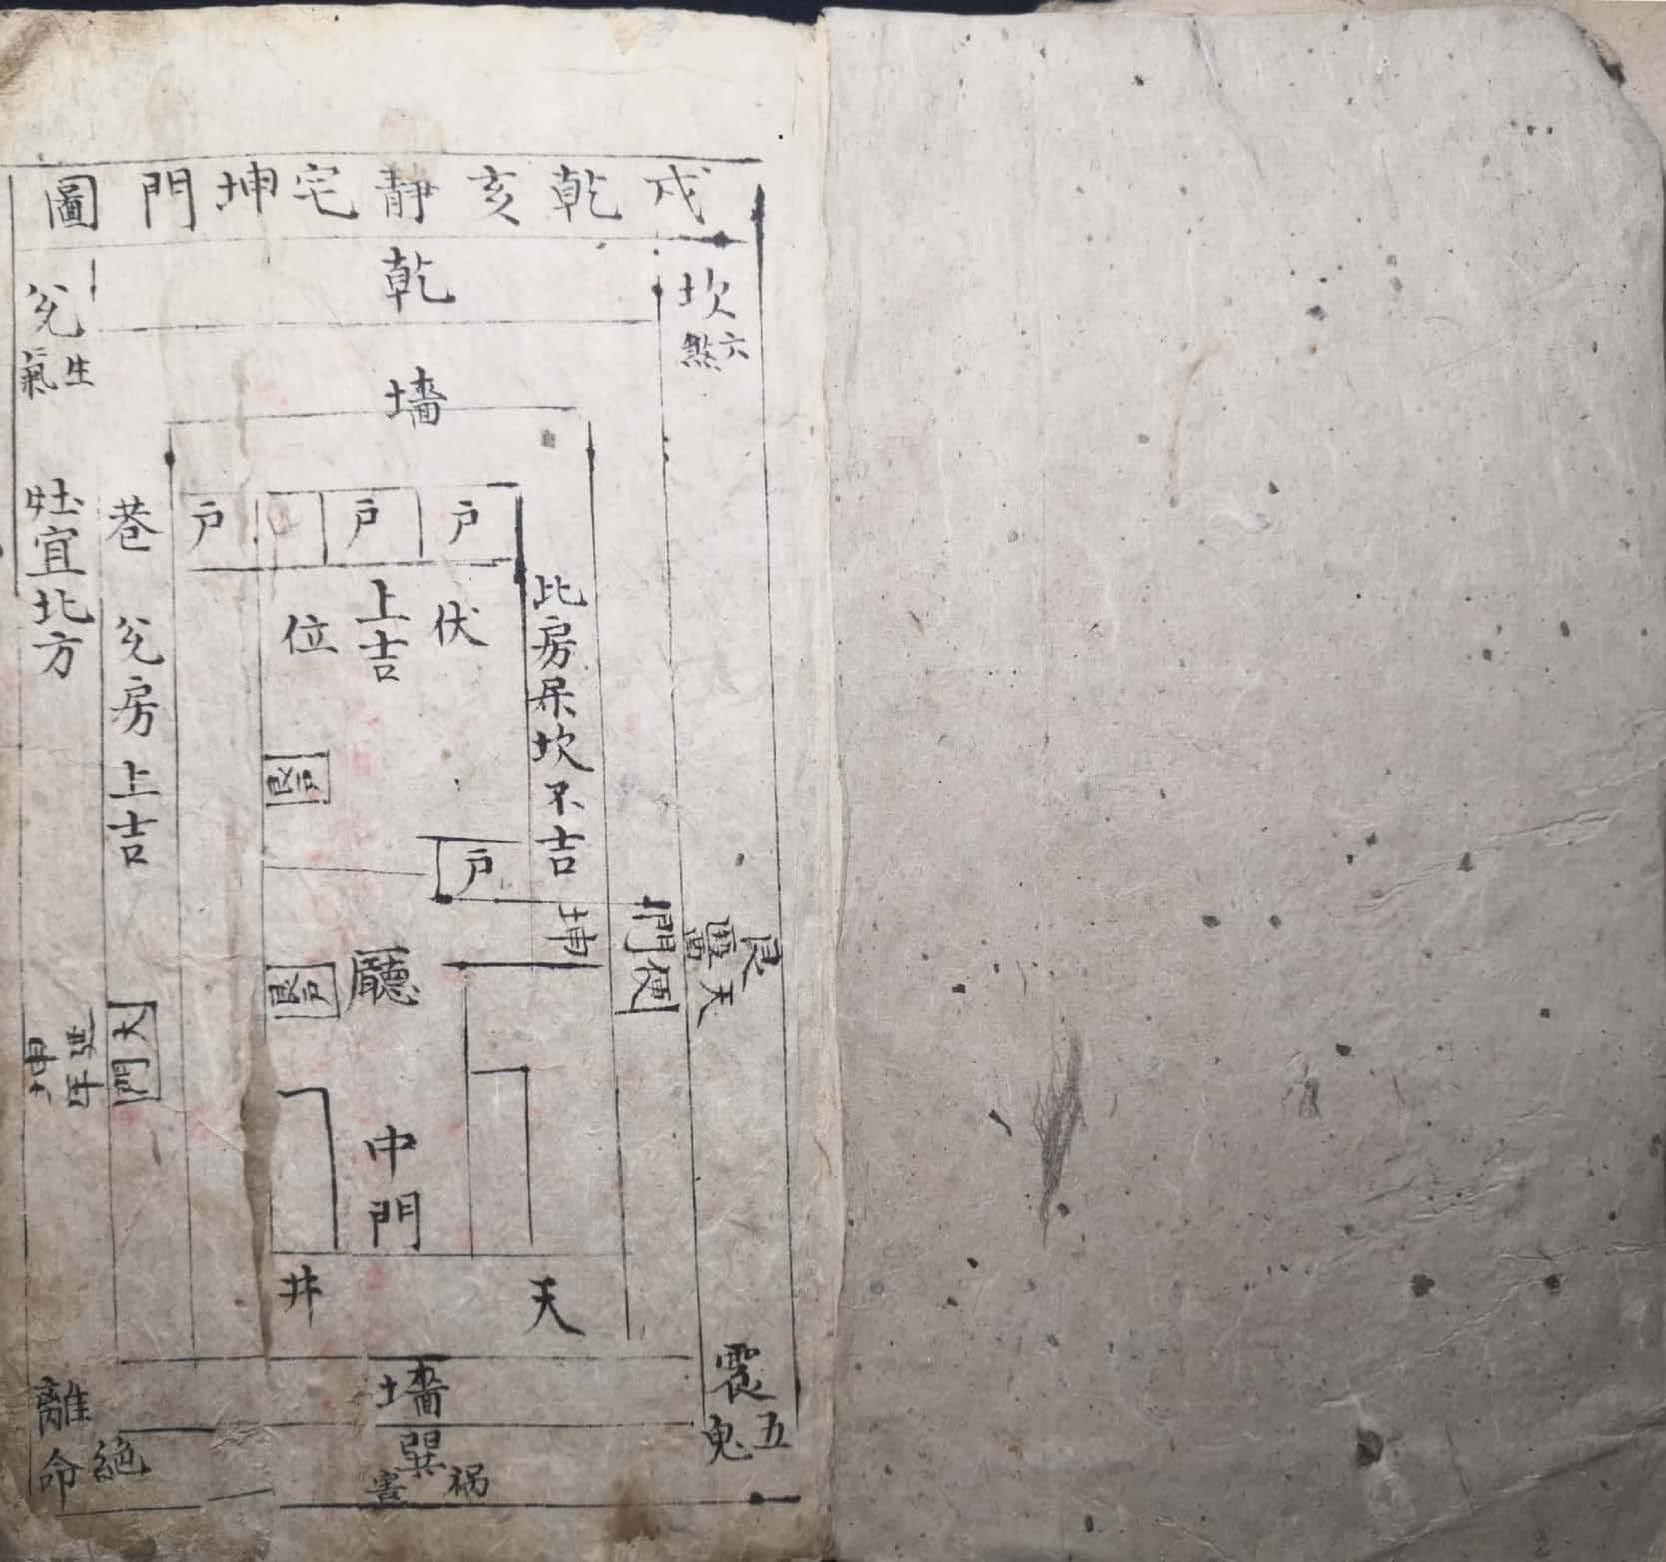 戌乾亥靜宅坤門圖
乾
坎
六
煞
兌
生
氣
墻
戶
戶
戶
巷
灶宜北方
伏
上吉
位
此房呆坎不吉
兌房上吉
戶
艮
天
門便
大門
坤
延年
廳
中門
天
井
震
五
鬼
墻
巽
祸
害
離
絕
命